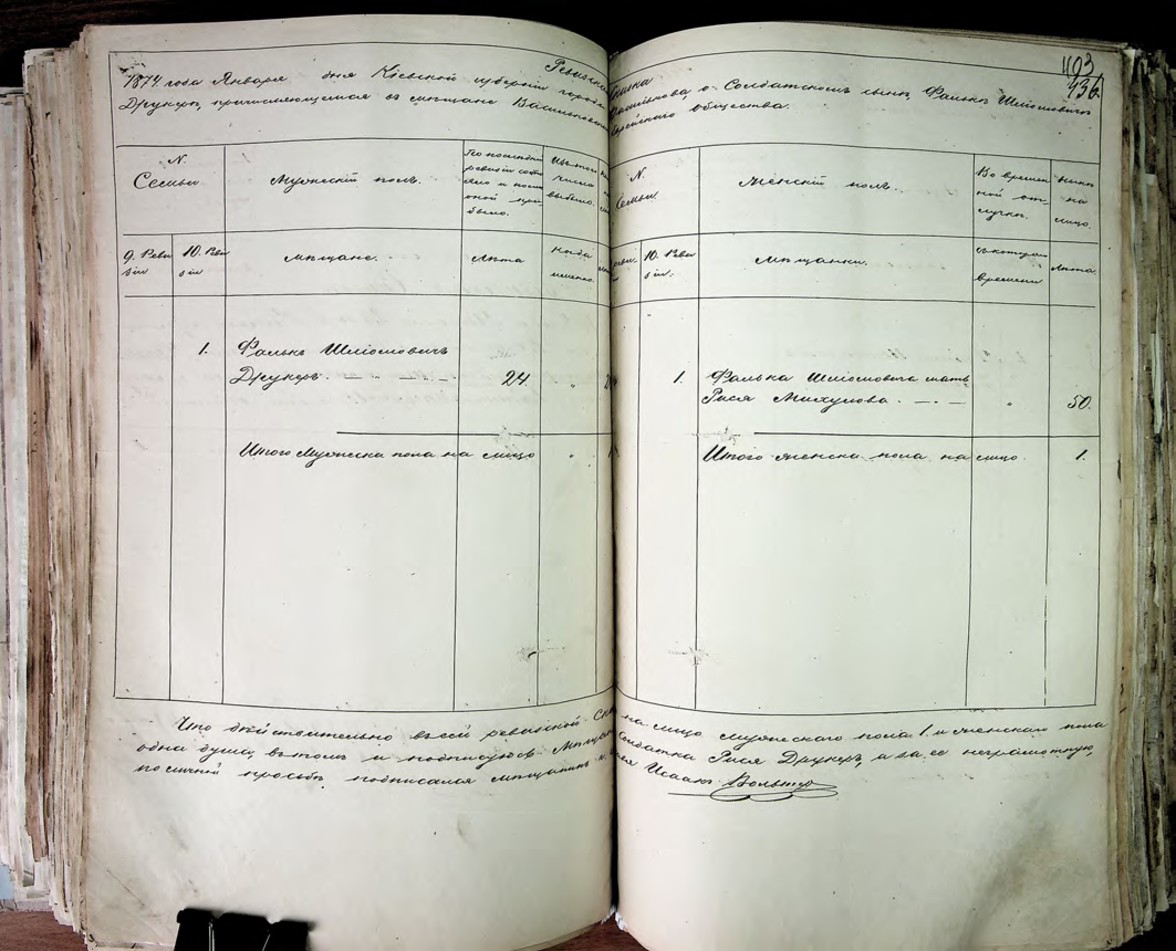 1103
436.
Ревизская сказка
1874 года Января дня Кіевской губерніи города Василькова, о Солдатскомъ сынѣ Фалькѣ Шліомовичѣ
Друкерѣ, причисляющемся въ мѣщане Васильковскаго Еврейскаго общества.
N. Семьи
Мужескій полъ.
По послѣдней ревизіи состояло и послѣ оной прибыло.
Изъ того числа выбыло.
N. Семьи.
Женскій полъ.
Во временной отлучкѣ.
Нынѣ на лицо.
9. Ревизіи
10. Ревизіи
Мѣщане.
Лѣта
Когда именно.
10. Ревизіи.
Мѣщанки.
Съ котораго времени
Лѣта.
1. Фалькъ Шліомовичъ
Друкеръ. 24. „
1. Фалька Шліомовича мать
Рися Михунова. „ 50.
Итого Мужеска пола на лицо „
Итого женска пола на лицо. 1.
Что дѣйствительно въ сей ревизской на лицо мужескаго пола 1. и женскаго пола
одна душа, въ томъ и подписуюсь Солдатка Рися Друкеръ, а за ее неграмотную,
по личной просьбѣ подписался мѣщанинъ Исаакъ